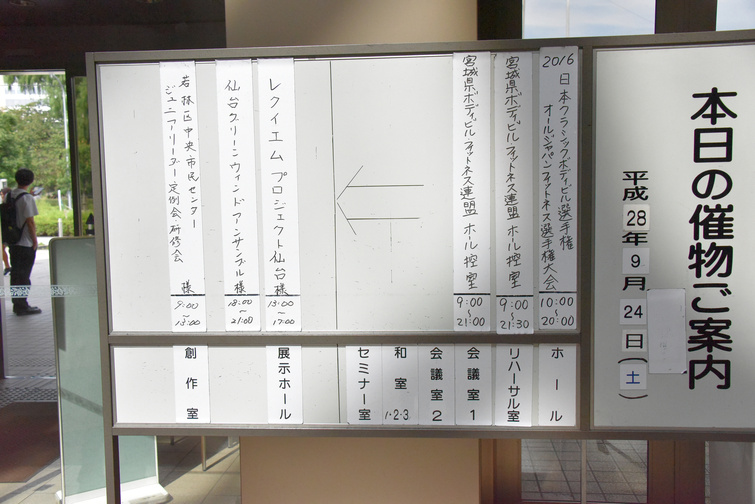 本日の催物ご案内
平成28年9月24日(土)
2016 日本クラシックボディビル選手権
オールジャパンフィットネス選手権大会
10:00
~
20:00
ホール
宮城県ボディビルフィットネス連盟 ホール控室
9:00
~
21:30
リハーサル室
宮城県ボディビルフィットネス連盟 ホール控室
9:00
~
21:00
会議室1
会議室2
和室1・2・3
セミナー室
レクイエムプロジェクト仙台様
13:00
~
17:00
展示ホール
仙台グリーンウィンドアンサンブル様
18:00
~
21:00
若林区中央市民センター
ジュニアリーダー定例会・研修会 様
9:00
~
13:00
創作室